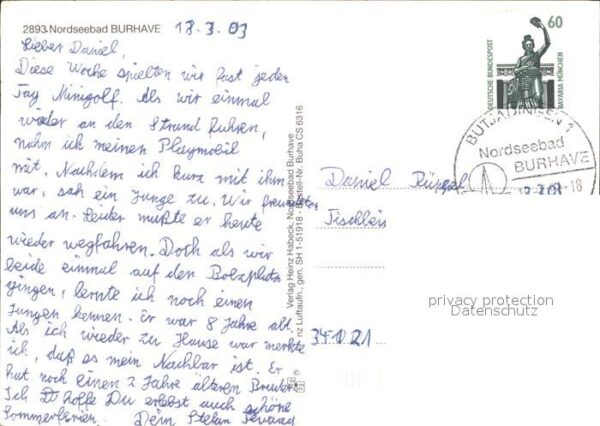 2893 Nordseebad BURHAVE
18.3.03
Lieber Daniel,
Diese Woche spielten wir fast jeden
Tag Minigolf. Als wir einmal
wieder an den Strand fuhren,
nahm ich meinen Playmobil
mit. Nachdem ich kurz mit ihm
war, sah ein Junge zu. Wir freundeten
uns an. Leider mußte er heute
wieder wegfahren. Doch als wir
beide einmal auf den Bolzplatz
gingen, lernte ich noch einen
Jungen kennen. Er war 8 Jahre alt.
Als ich wieder zu Hause war merkte
ich, daß es mein Nachbar ist. Er
hat noch einen 2 Jahre älteren Bruder.
Ich hoffe Du erlebst auch schöne
Sommerferien. Dein Stefan
Verlag Heinz Habeck, Nordseebad Burhave
nz Luftaufn., gen. SH 1-51918 - Bestell-Nr. Buha CS 6316
60
DEUTSCHE BUNDESPOST
BAVARIA MÜNCHEN
BUTJADINGEN 1
Nordseebad
BURHAVE
-18
Daniel
Tischlein
34 0 21
privacy protection
Datenschutz